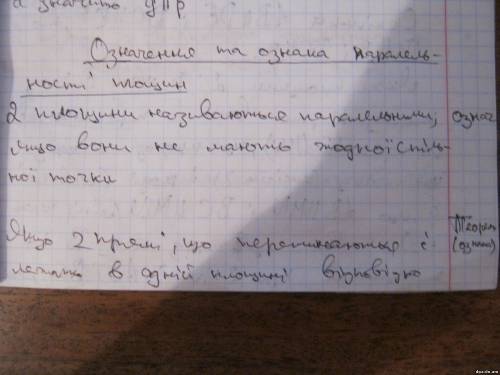 а значить
Означення та ознака паралель-
ності площин
2 площини називаються паралельними, озна
якщо вони не мають жодної спіль-
ної точки
Якщо 2 прямі, що перетинаються і Теорем
лежать в одній площині відповідно (ознака)